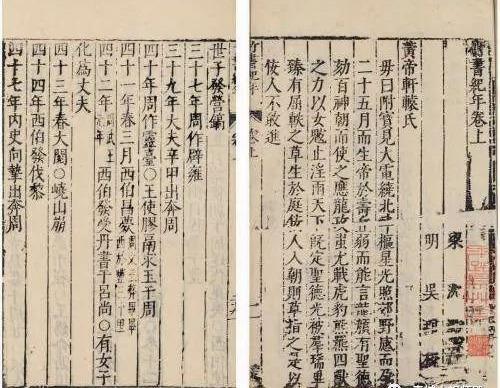 竹書紀年卷上
梁 沈
明 吳琯
黃帝軒轅氏
母曰附寶見大電繞北斗樞星光照郊野感而孕
二十五月而生帝於壽丘弱而能言龍顏有聖德
劾百神朝而使之應龍攻蚩尤戰虎豹熊羆四
之力以女魃止淫雨天下既定聖德光被群瑞畢
臻有屈軼之草生於庭佞人入朝則草指之是以
佞人不敢進
世子發營鎬
三十七年周作辟雍
三十九年大夫辛甲出奔周
四十年周作靈臺○王使膠鬲求玉于周
四十一年春三月西伯昌薨
四十二年西伯發受丹書于呂尚○有女子
化為丈夫
四十三年春大閱○嶢山崩
四十四年西伯發伐黎
四十七年內史向摯出奔周